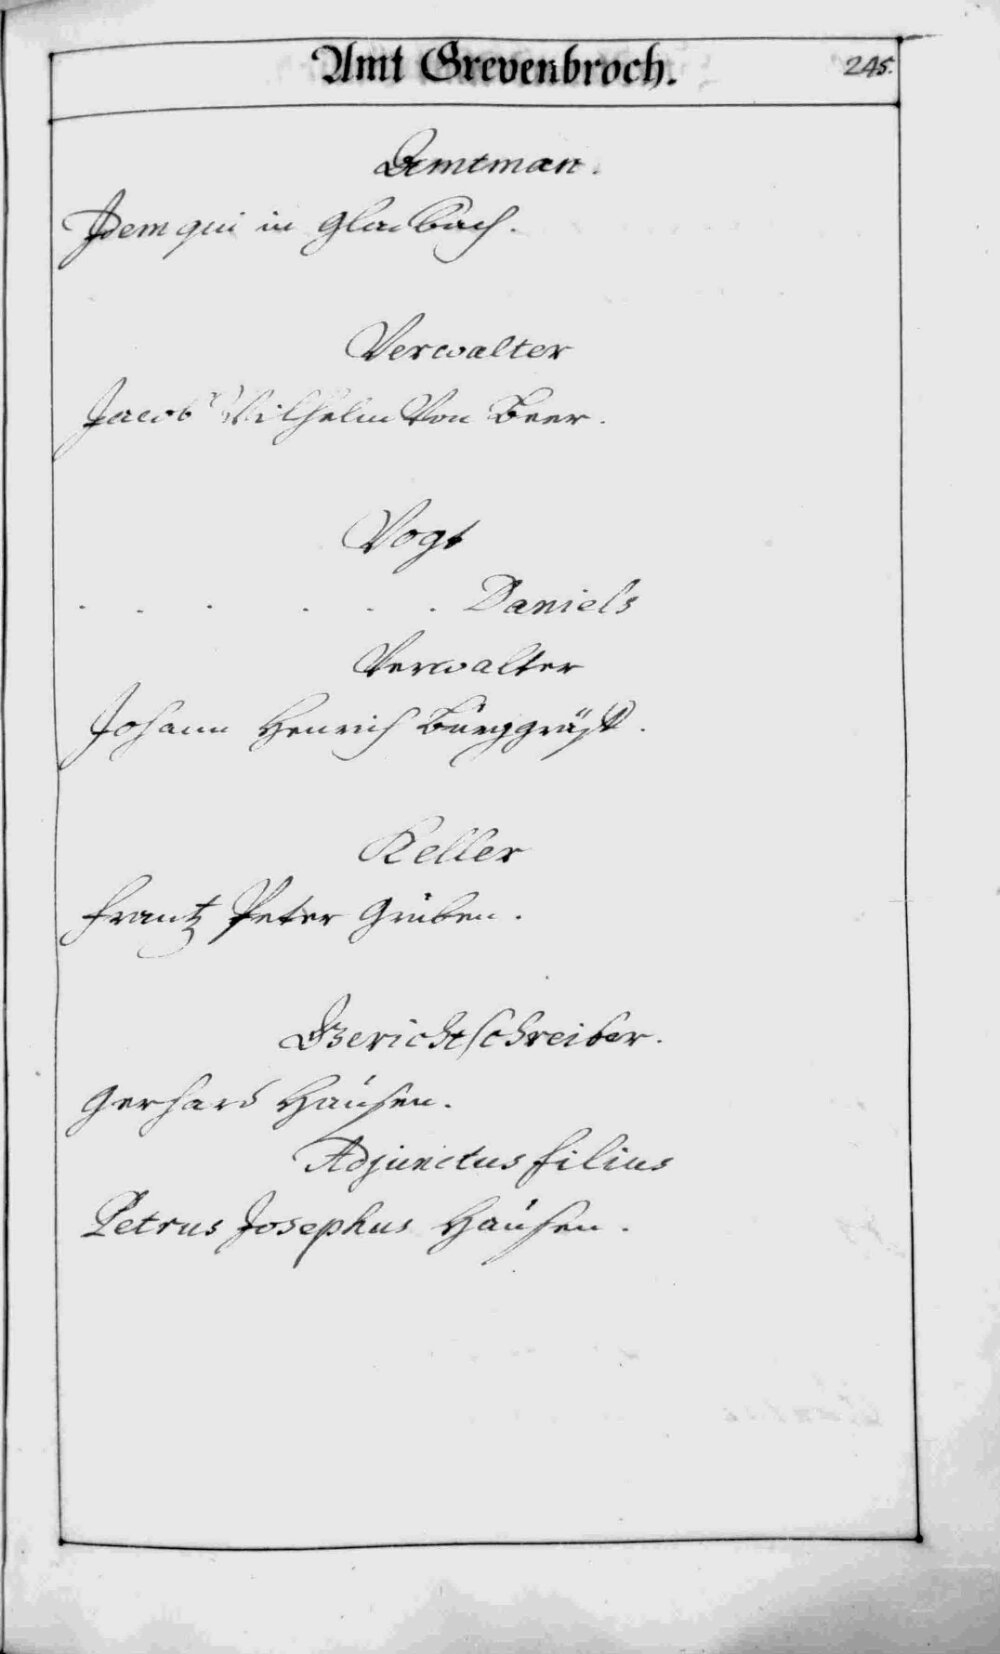 Amt Grevenbroch.
245.
Ambtman.
Idem qui in Gladbach.
Verwalter
Jacob Wilhelm Von Beer.
Vogt
. . . . . . Daniels
Verwalter
Johann Henrich
Keller
Frantz Peter Gruben.
Gerichtschreiber.
Gerhard Hausen.
Adjunctus filius
Petrus Josephus Hausen.